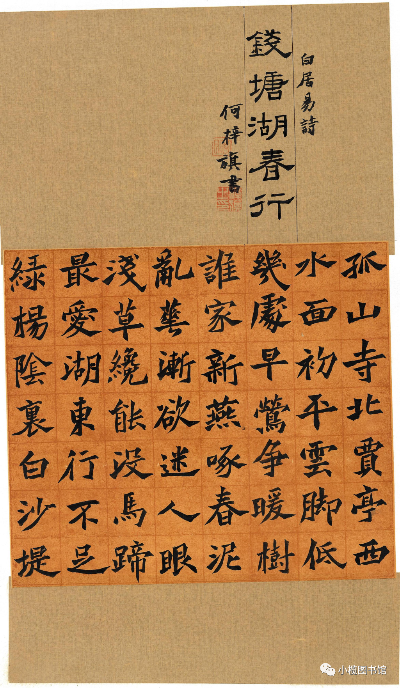 白居易詩
錢塘湖春行
何梓旗書
孤山寺北賈亭西
水面初平雲脚低
幾處早鶯争暖樹
誰家新燕啄春泥
亂花漸欲迷人眼
淺草纔能没馬蹄
最愛湖東行不足
綠楊陰裏白沙堤
小榄图书馆